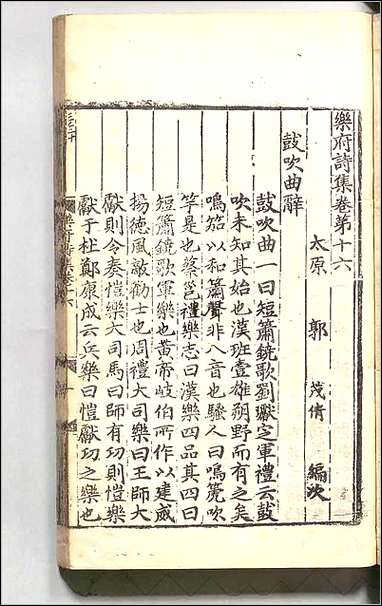 樂府詩集卷第十六
太原 郭 茂倩 編次
鼓吹曲辭
鼓吹曲一曰短簫鐃歌劉瓛定軍禮云鼓
吹未知其始也漢班壹雄朔野而有之矣
鳴笳以和簫聲非八音也騷人曰鳴篪吹
竽是也蔡邕禮樂志曰漢樂四品其四曰
短簫鐃歌軍樂也黃帝岐伯所作以建威
揚德風敵勸士也周禮大司樂曰王師大
獻則令奏愷樂大司馬曰師有功則愷樂
獻于社鄭康成云兵樂曰愷獻功之樂也